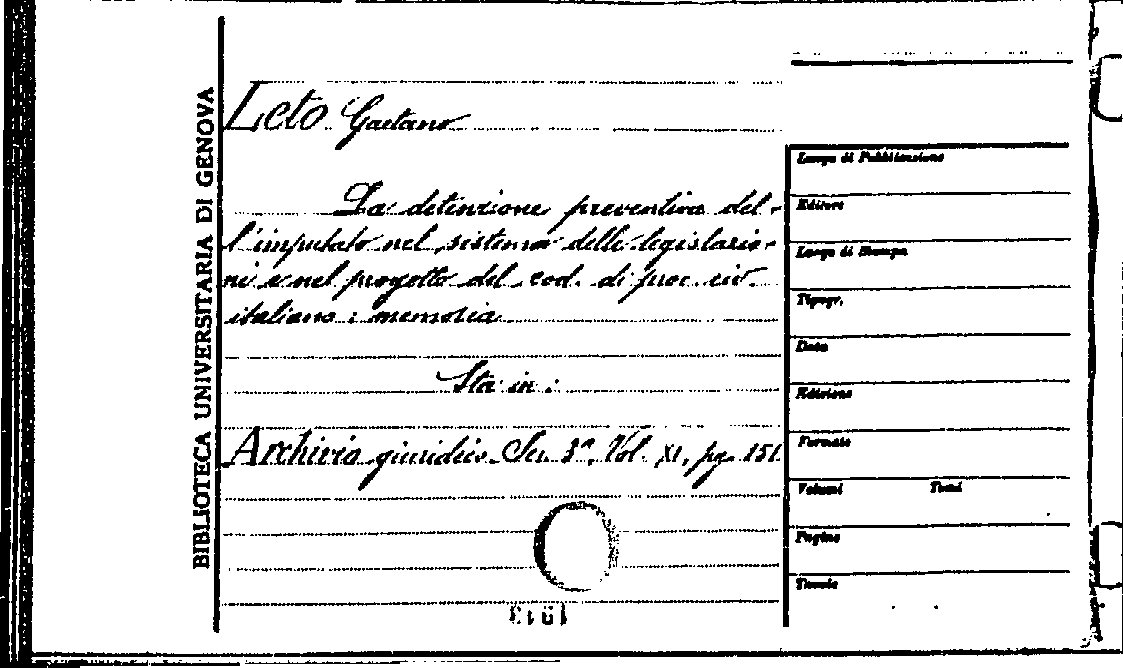 BIBLIOTECA UNIVERSITARIA DI GENOVA
Leto Gaetano
La detenzione preventiva del-
l'imputato nel sistema delle legislazio-
ni e nel progetto del cod. di proc. civ.
italiano: memoria
Sta in:
Archivio giuridico. Ser. 3ª, Vol. XI, pg. 151
Luogo di Pubblicazione
Editore
Luogo di Stampa
Tipogr.
Data
Edizione
Formato
Volumi Tomi
Pagine
Tavole